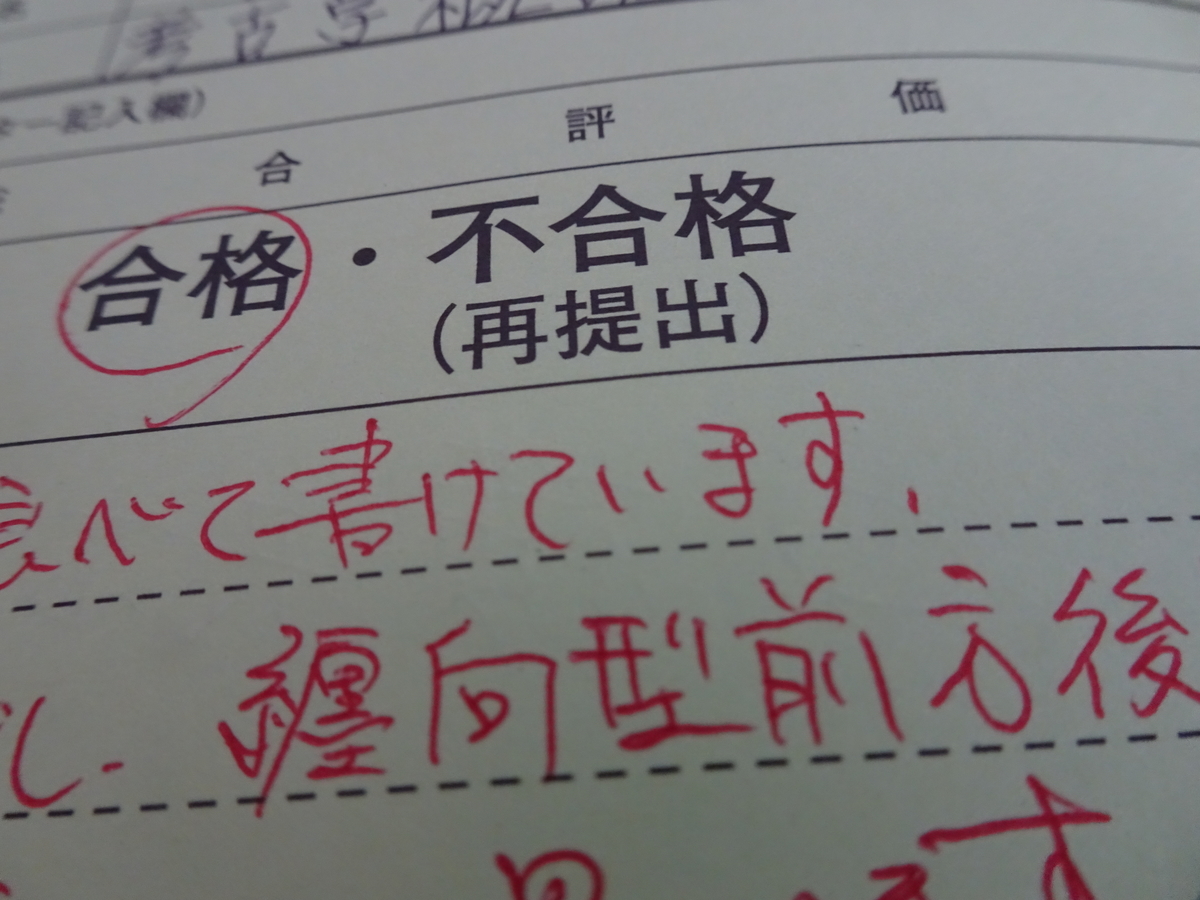 考古学
ー記入欄）
合　評　価
合格・不合格
（再提出）
べて書けています。
し、纒向型前方後
す